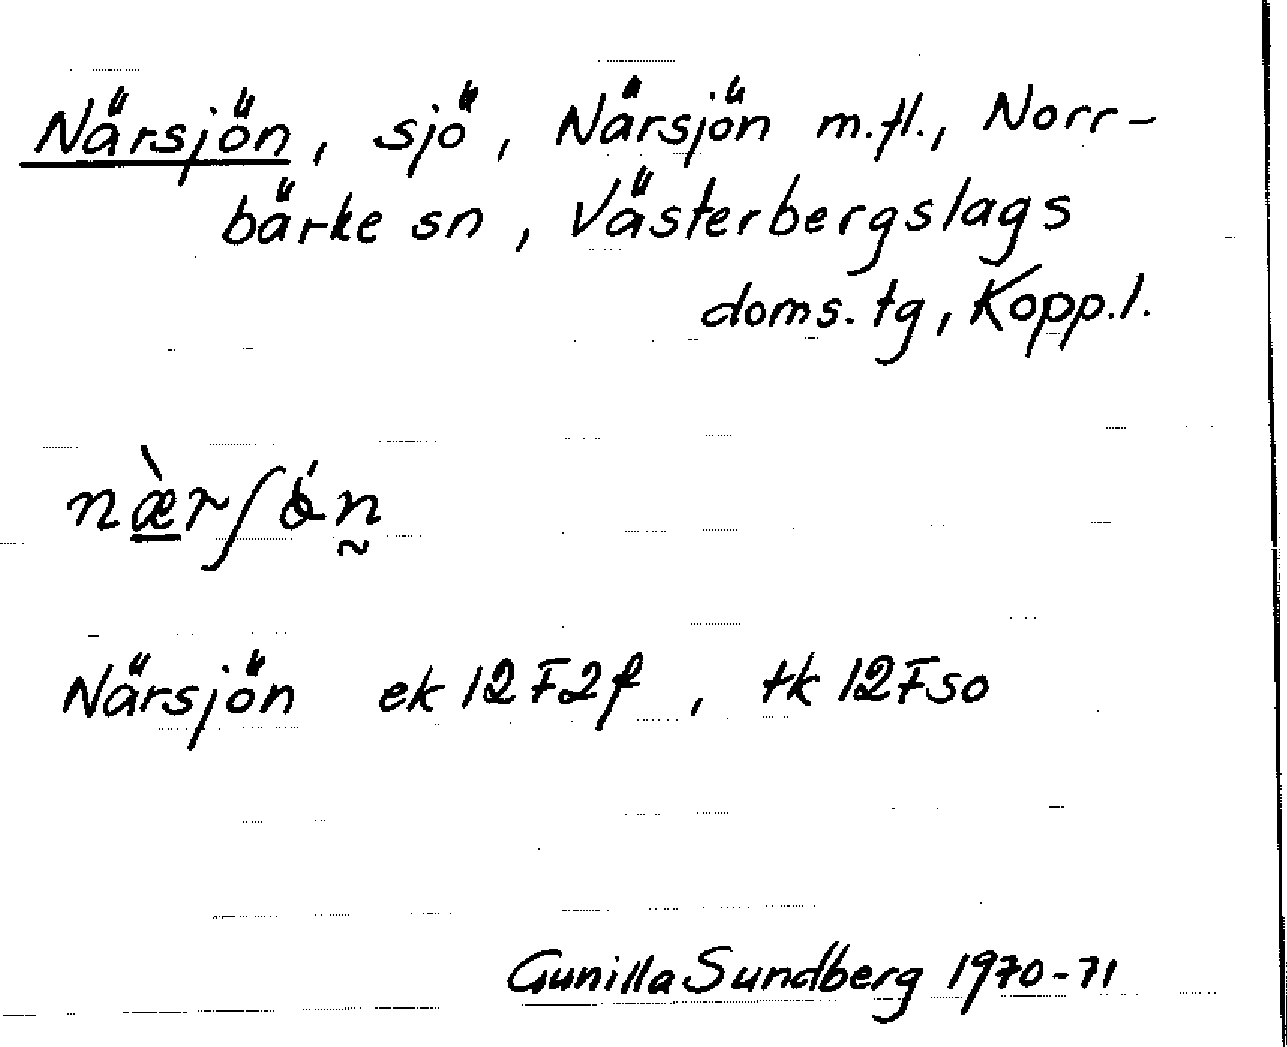 Närsjön, sjö, Närsjön m.fl., Norr-
bärke sn, Västerbergslags
doms. tg, Kopp.l.
Närsjön ek 12F2f, tk 12Fso
Gunilla Sundberg 1970-71